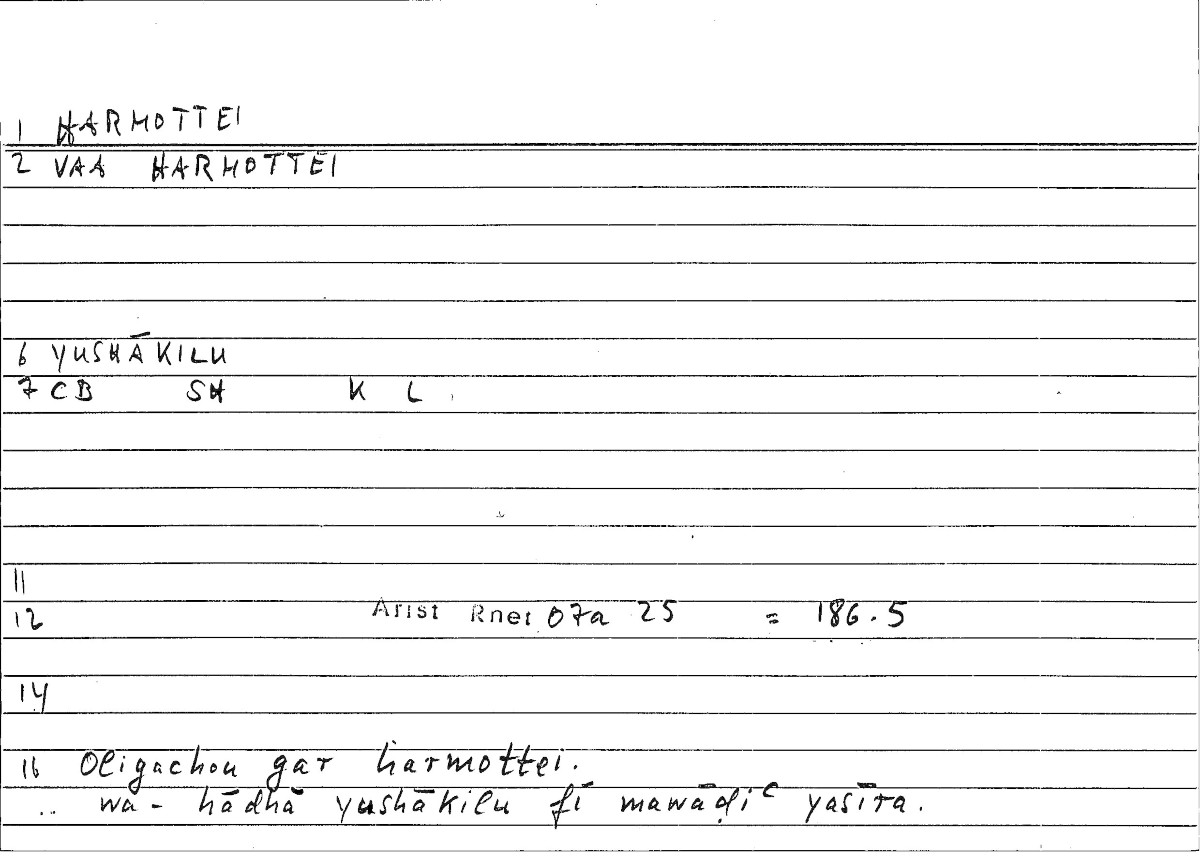 1 HARMOTTEI
2 VAA HARMOTTEI
6 YUSHĀKILU
7 CB SH K L
11
12 Arist Rhet 07a 25 = 186.5
14
16 Oligachou gar harmottei.
.. wa - hādhā yushākilu fī mawāḍiʿ yasīra.